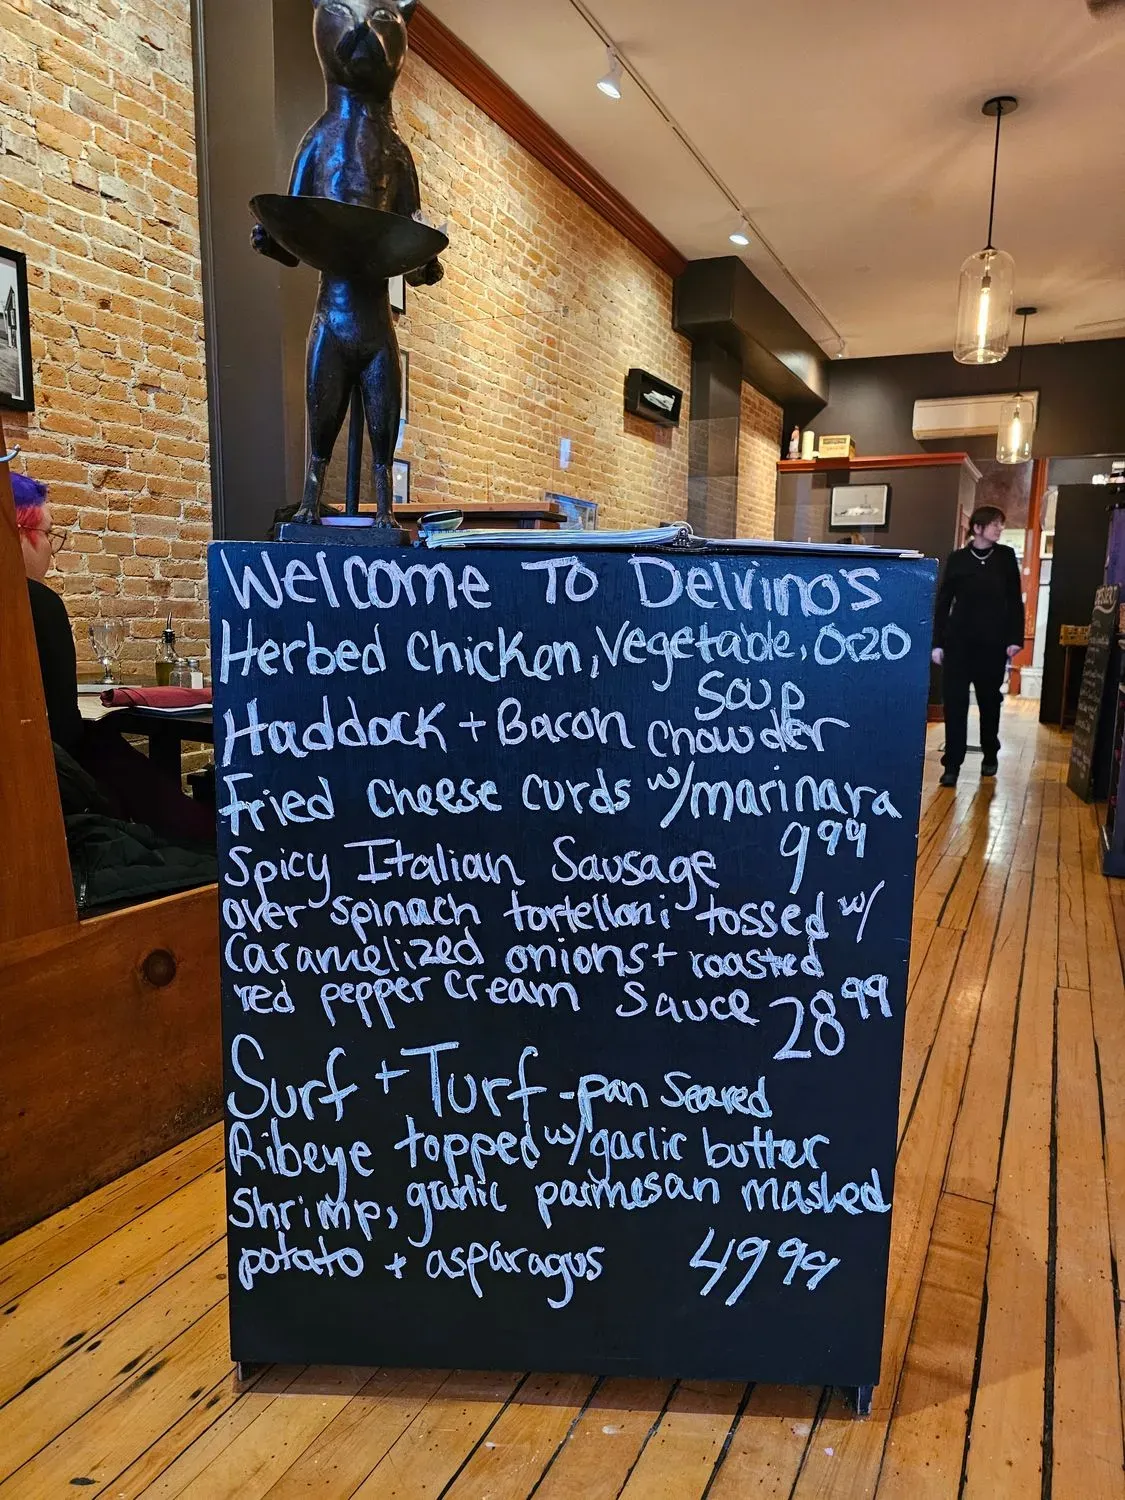 Welcome To Delvino's
Herbed Chicken, Vegetable, Orzo
Soup
Haddock + Bacon Chowder
Fried Cheese Curds w/marinara
9 99
Spicy Italian Sausage
over spinach tortelloni tossed w/
Caramelized onions + roasted
red pepper cream sauce 28 99
Surf + Turf - pan seared
Ribeye topped w/garlic butter
shrimp, garlic parmesan mashed
potato + asparagus 49 99